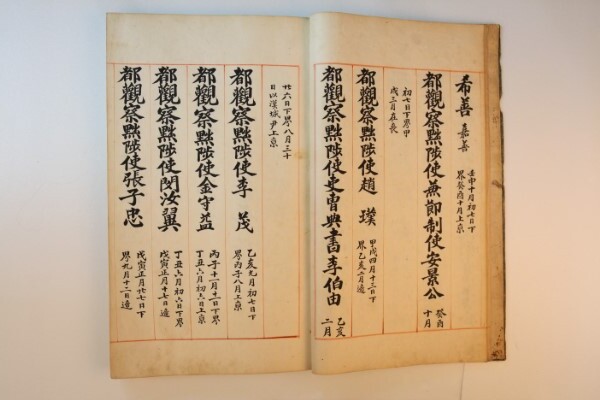 希善 嘉善
壬申十月初七日下
界癸酉十月上京
都觀察黜陟使兼節制使安景公
癸酉
十月
初七日下界甲
戌三月在喪
都觀察黜陟使趙 璞
甲戌四月十三日下
界乙亥二月遞
都觀察黜陟使吏曹典書李伯由
乙亥
二月
廿六日下界八月三十
日以漢城尹上京
都觀察黜陟使李 茂
乙亥九月初七日下
界丙子八月上京
都觀察黜陟使金守益
丙子十一月十一日下界
丁丑六月初六日上京
都觀察黜陟使閔汝翼
丁丑六月初六日下界
戊寅正月十七日遞
都觀察黜陟使張子忠
戊寅正月廿七日下
界九月十二日遞